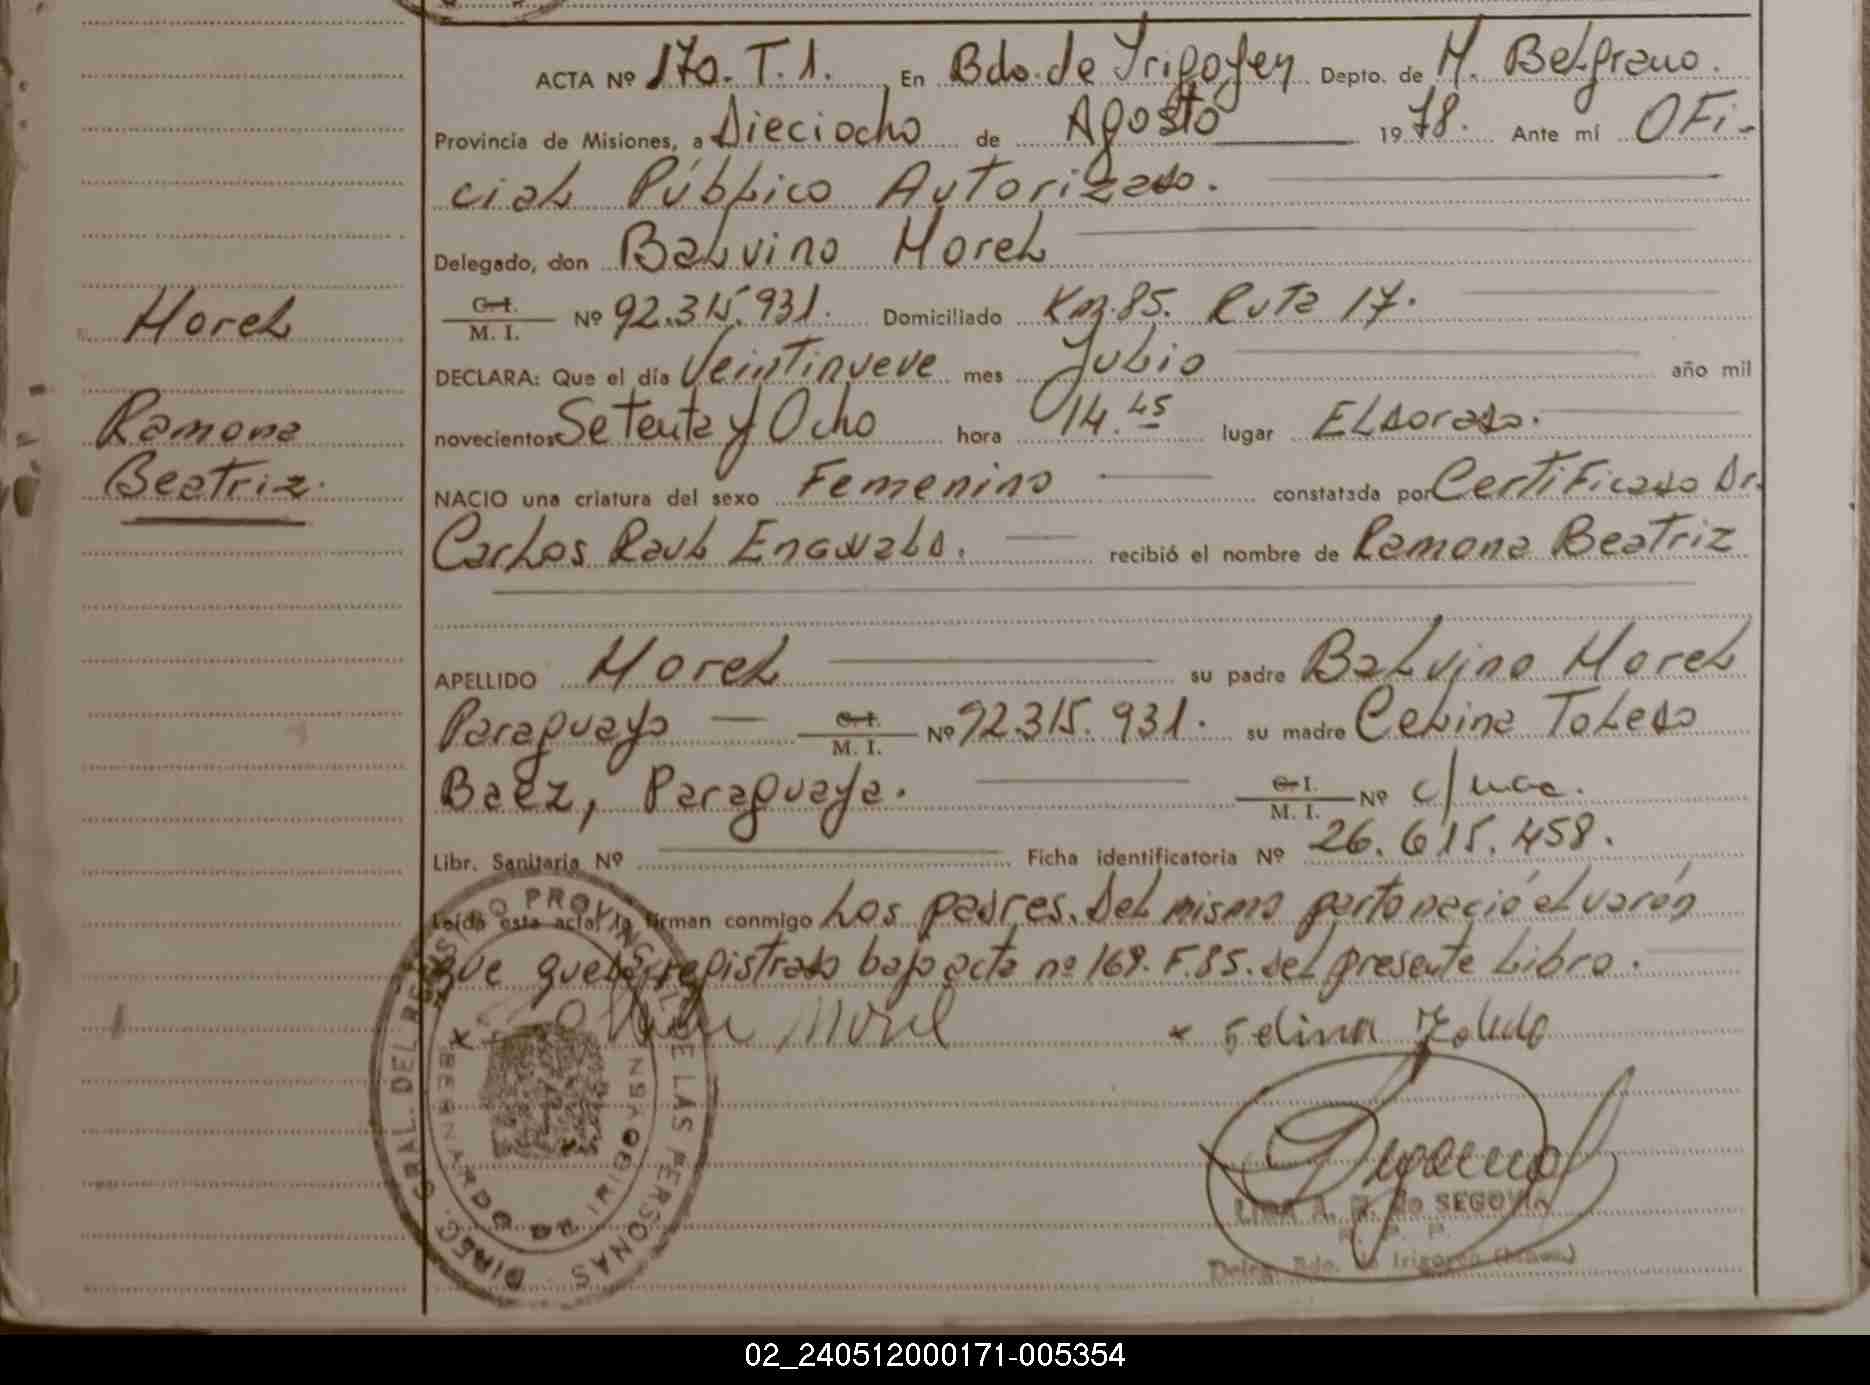 ACTA Nº 170. T. 1. En Bdo. de Irigoyen Depto. de M. Belgrano.
Provincia de Misiones, a Dieciocho de Agosto 1978. Ante mí OFi-
cial Público Autorizado.
Delegado, don Balvino Morel
C. I.
M. I. Nº 92.315.931. Domiciliado Km. 85. Ruta 17.
Morel
DECLARA: Que el día Veintinueve mes Julio año mil
novecientos Setenta y Ocho hora 14.45 lugar ELdorado.
Ramona
Beatriz.
NACIO una criatura del sexo Femenino constatada por Certificado Dr.
Carlos Raul recibió el nombre de Ramona Beatriz
APELLIDO Morel su padre Balvino Morel
Paraguayo C. I. M. I. Nº 92.315.931. su madre Celina Toledo
Baez, Paraguaya. C. I. M. I. Nº c/
Libr. Sanitaria Nº Ficha identificatoria Nº 26.615.458.
Leída esta acta, la firman conmigo Los padres. Del mismo parto nació el varón
que queda registrado bajo acta nº 169. F. 85. del presente Libro.
x Morel x Celina Toledo
DIREC. GRAL. DEL REGISTRO PROVINCIAL DE LAS PERSONAS
BERNARDO DE IRIGOYEN
A. de SEGOVIA
Deleg. Bdo. de Irigoyen (Mnes.)
02_240512000171-005354